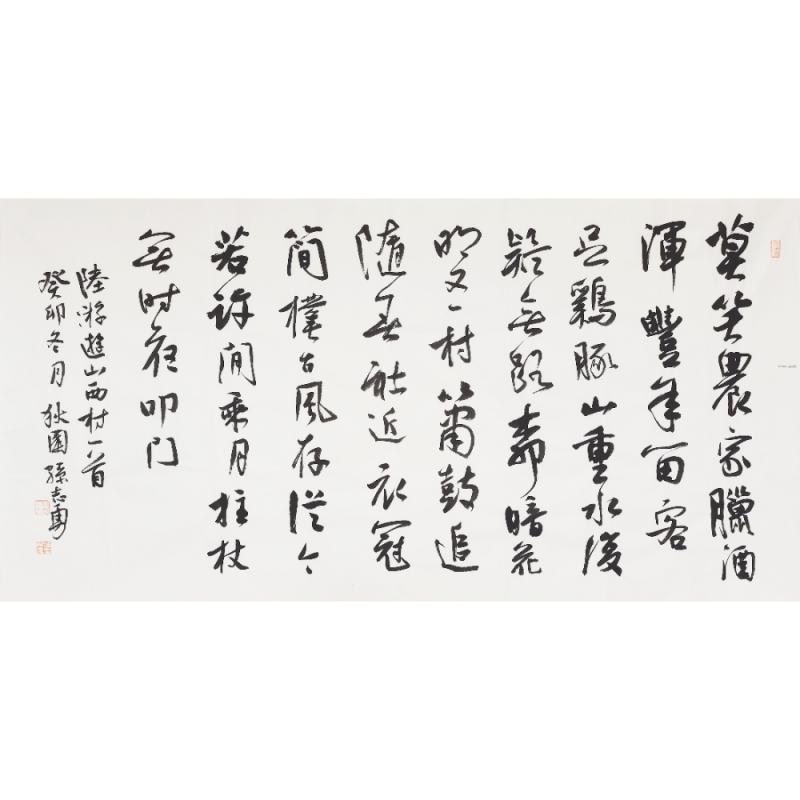 莫笑農家臘酒
渾豐年留客
足鷄豚山重水復
疑無路柳暗花
明又一村簫鼓追
隨春社近衣冠
簡樸古風存從今
若許閒乘月拄杖
無时夜叩门
陸游遊山西村一首
癸卯冬月 狄園 孫志勇